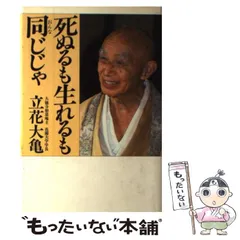 死ぬるも生れるも
同じじゃ
立花大亀
もったいない
"もったいない本舗"